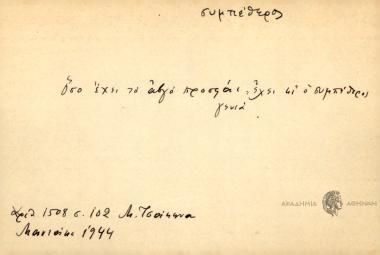 συμπέθερος
Ὅσο ἔχει τὸ ἀβγὸ προσφάι, ἔχει κι ὁ συμπέθερος
γενιά
ἀριθ. 1508 σ. 102 Μ. Τσάκωνα
1944
ΑΚΑΔΗΜΙΑ ΑΘΗΝΩΝ